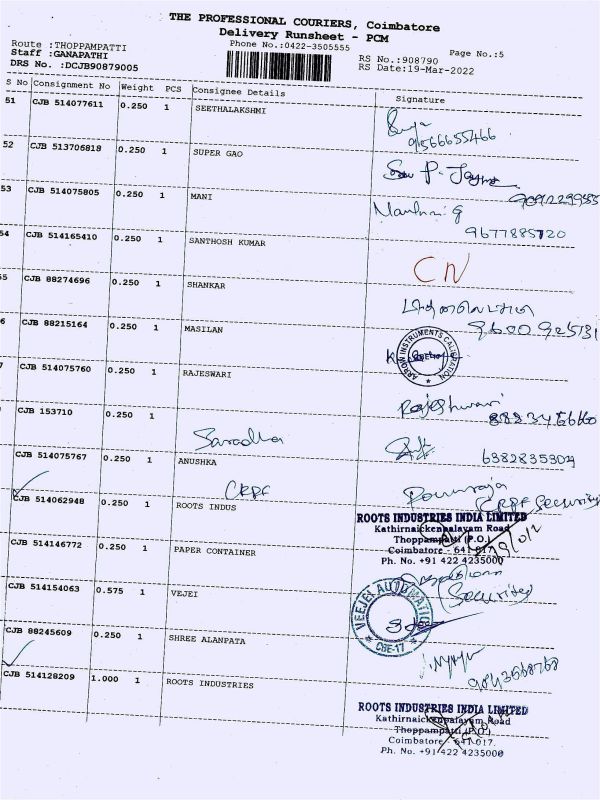 THE PROFESSIONAL COURIERS, Coimbatore
Delivery Runsheet - PCM
Phone No.:0422-3505555
Page No.:5
Route :THOPPAMPATTI
Staff :GANAPATHI
DRS No. :DCJB90879005
RS No.:908790
RS Date:19-Mar-2022
S No Consignment No Weight PCS Consignee Details Signature
51 CJB 514077611 0.250 1 SEETHALAKSHMI
9566655466
52 CJB 513706818 0.250 1 SUPER GAO
53 CJB 514075805 0.250 1 MANI
9677885720
54 CJB 514165410 0.250 1 SANTHOSH KUMAR
CN
55 CJB 88274696 0.250 1 SHANKAR
6 CJB 88215164 0.250 1 MASILAN
ARROW INSTRUMENTS CALIBRATION
7 CJB 514075760 0.250 1 RAJESWARI
Rajeshwari
CJB 153710 0.250 1
Saradha
6382835304
CJB 514075767 0.250 1 ANUSHKA
CRPF
CRPF Security
CJB 514062948 0.250 1 ROOTS INDUS
ROOTS INDUSTRIES INDIA LIMITED
Kathirnaickenpalayam Road
Thoppampatti (P.O.)
Coimbatore - 641 017.
Ph. No. +91 422 4235000
CJB 514146772 0.250 1 PAPER CONTAINER
CJB 514154063 0.575 1 VEJEI
VEEJEI AUTOMATIC
CBE-17
CJB 88245609 0.250 1 SHREE ALANPATA
CJB 514128209 1.000 1 ROOTS INDUSTRIES
ROOTS INDUSTRIES INDIA LIMITED
Kathirnaickenpalayam Road
Thoppampatti (P.O.)
Coimbatore - 641 017.
Ph. No. +91 422 4235000